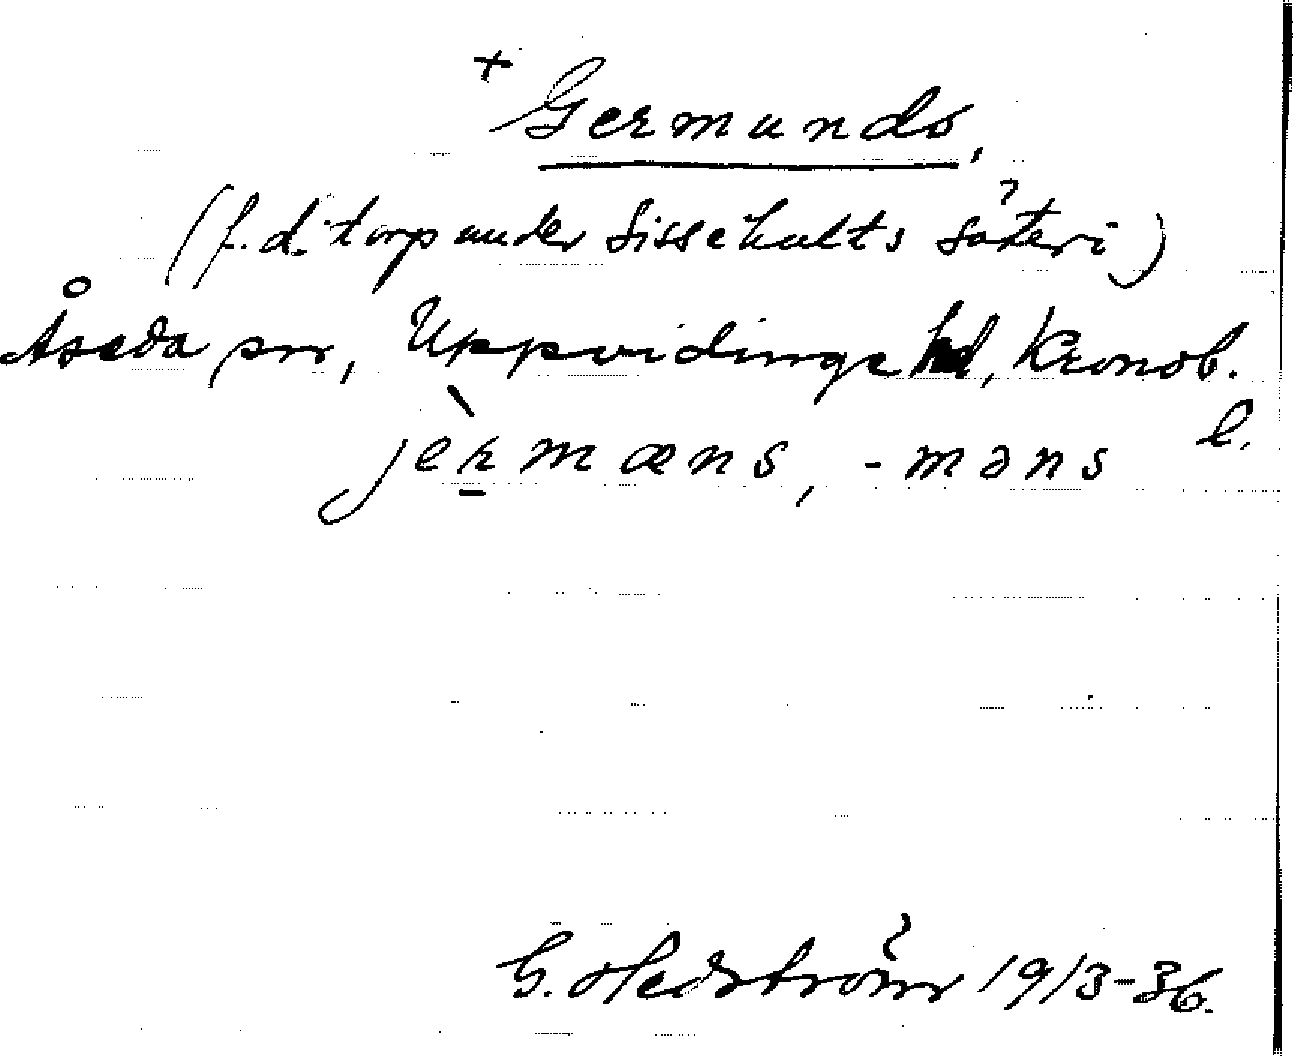 + Germunds,
(f.d. torp under Sissehults säteri)
Åseda sn, Uppvidinge hd, Kronob.
l.
jèrmæns, -məns
G. Hedström 19/3-36.